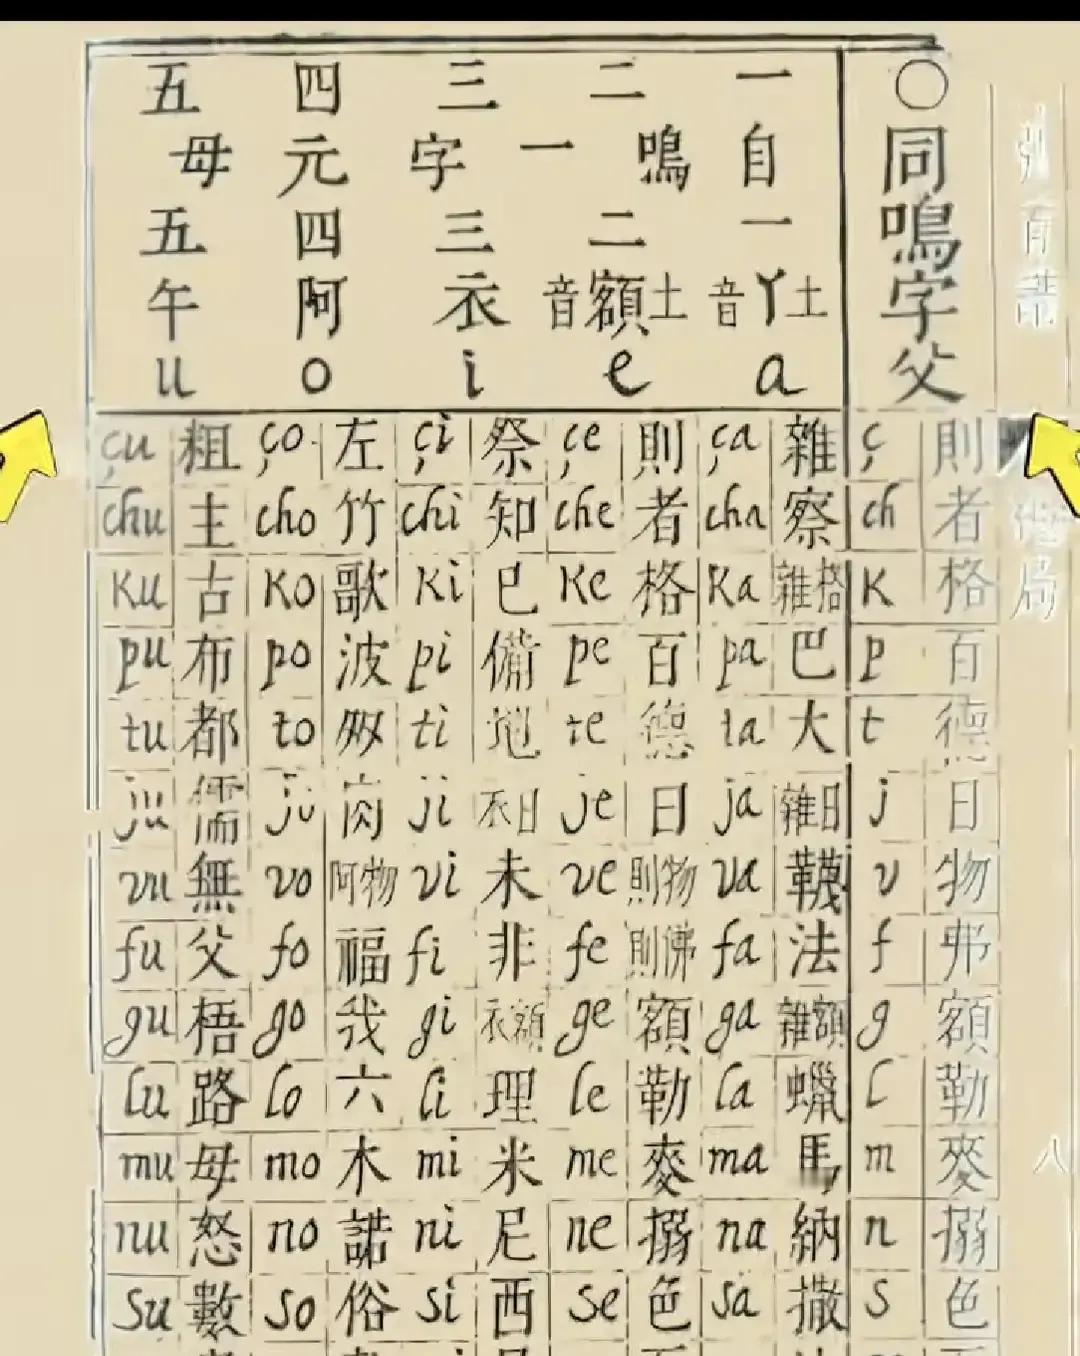 〇同鳴字父
一 自 一 土丫音 a
二 鳴 二 土額音 e
一
三 字 三 衣 i
四 元 四 阿 o
五 母 五 午 u
çu 粗 ço 左 çi 祭 çe 則 ça 雜 ç 則
chu 主 cho 竹 chi 知 che 者 cha 察 ch 者
Ku 古 Ko 歌 Ki 巳 Ke 格 Ka 雜格 K 格
pu 布 po 波 pi 備 pe 百 pa 巴 p 百
tu 都 to 鿎 ti 地 te 德 ta 大 t 德
ju 儒 jo 肉 ji 衣日 je 日 ja 雜日 j 日
vu 無 vo 阿物 vi 未 ve 則物 va 韈 v 物
fu 父 fo 福 fi 非 fe 則弗 fa 法 f 弗
gu 梧 go 我 gi 衣額 ge 額 ga 雜額 g 額
lu 路 lo 六 li 理 le 勒 la 蠟 l 勒
mu 母 mo 木 mi 米 me 麥 ma 馬 m 麥
nu 怒 no 諾 ni 尼 ne 搦 na 納 n 搦
su 數 so 俗 si 西 se 色 sa 撒 s 色
局
八